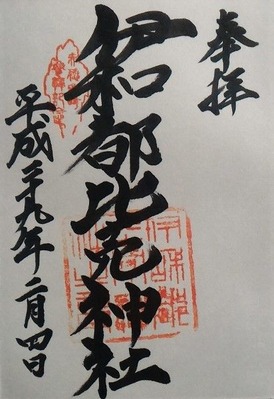 奉拝
伊和都比売神社
平成二十九年二月四日